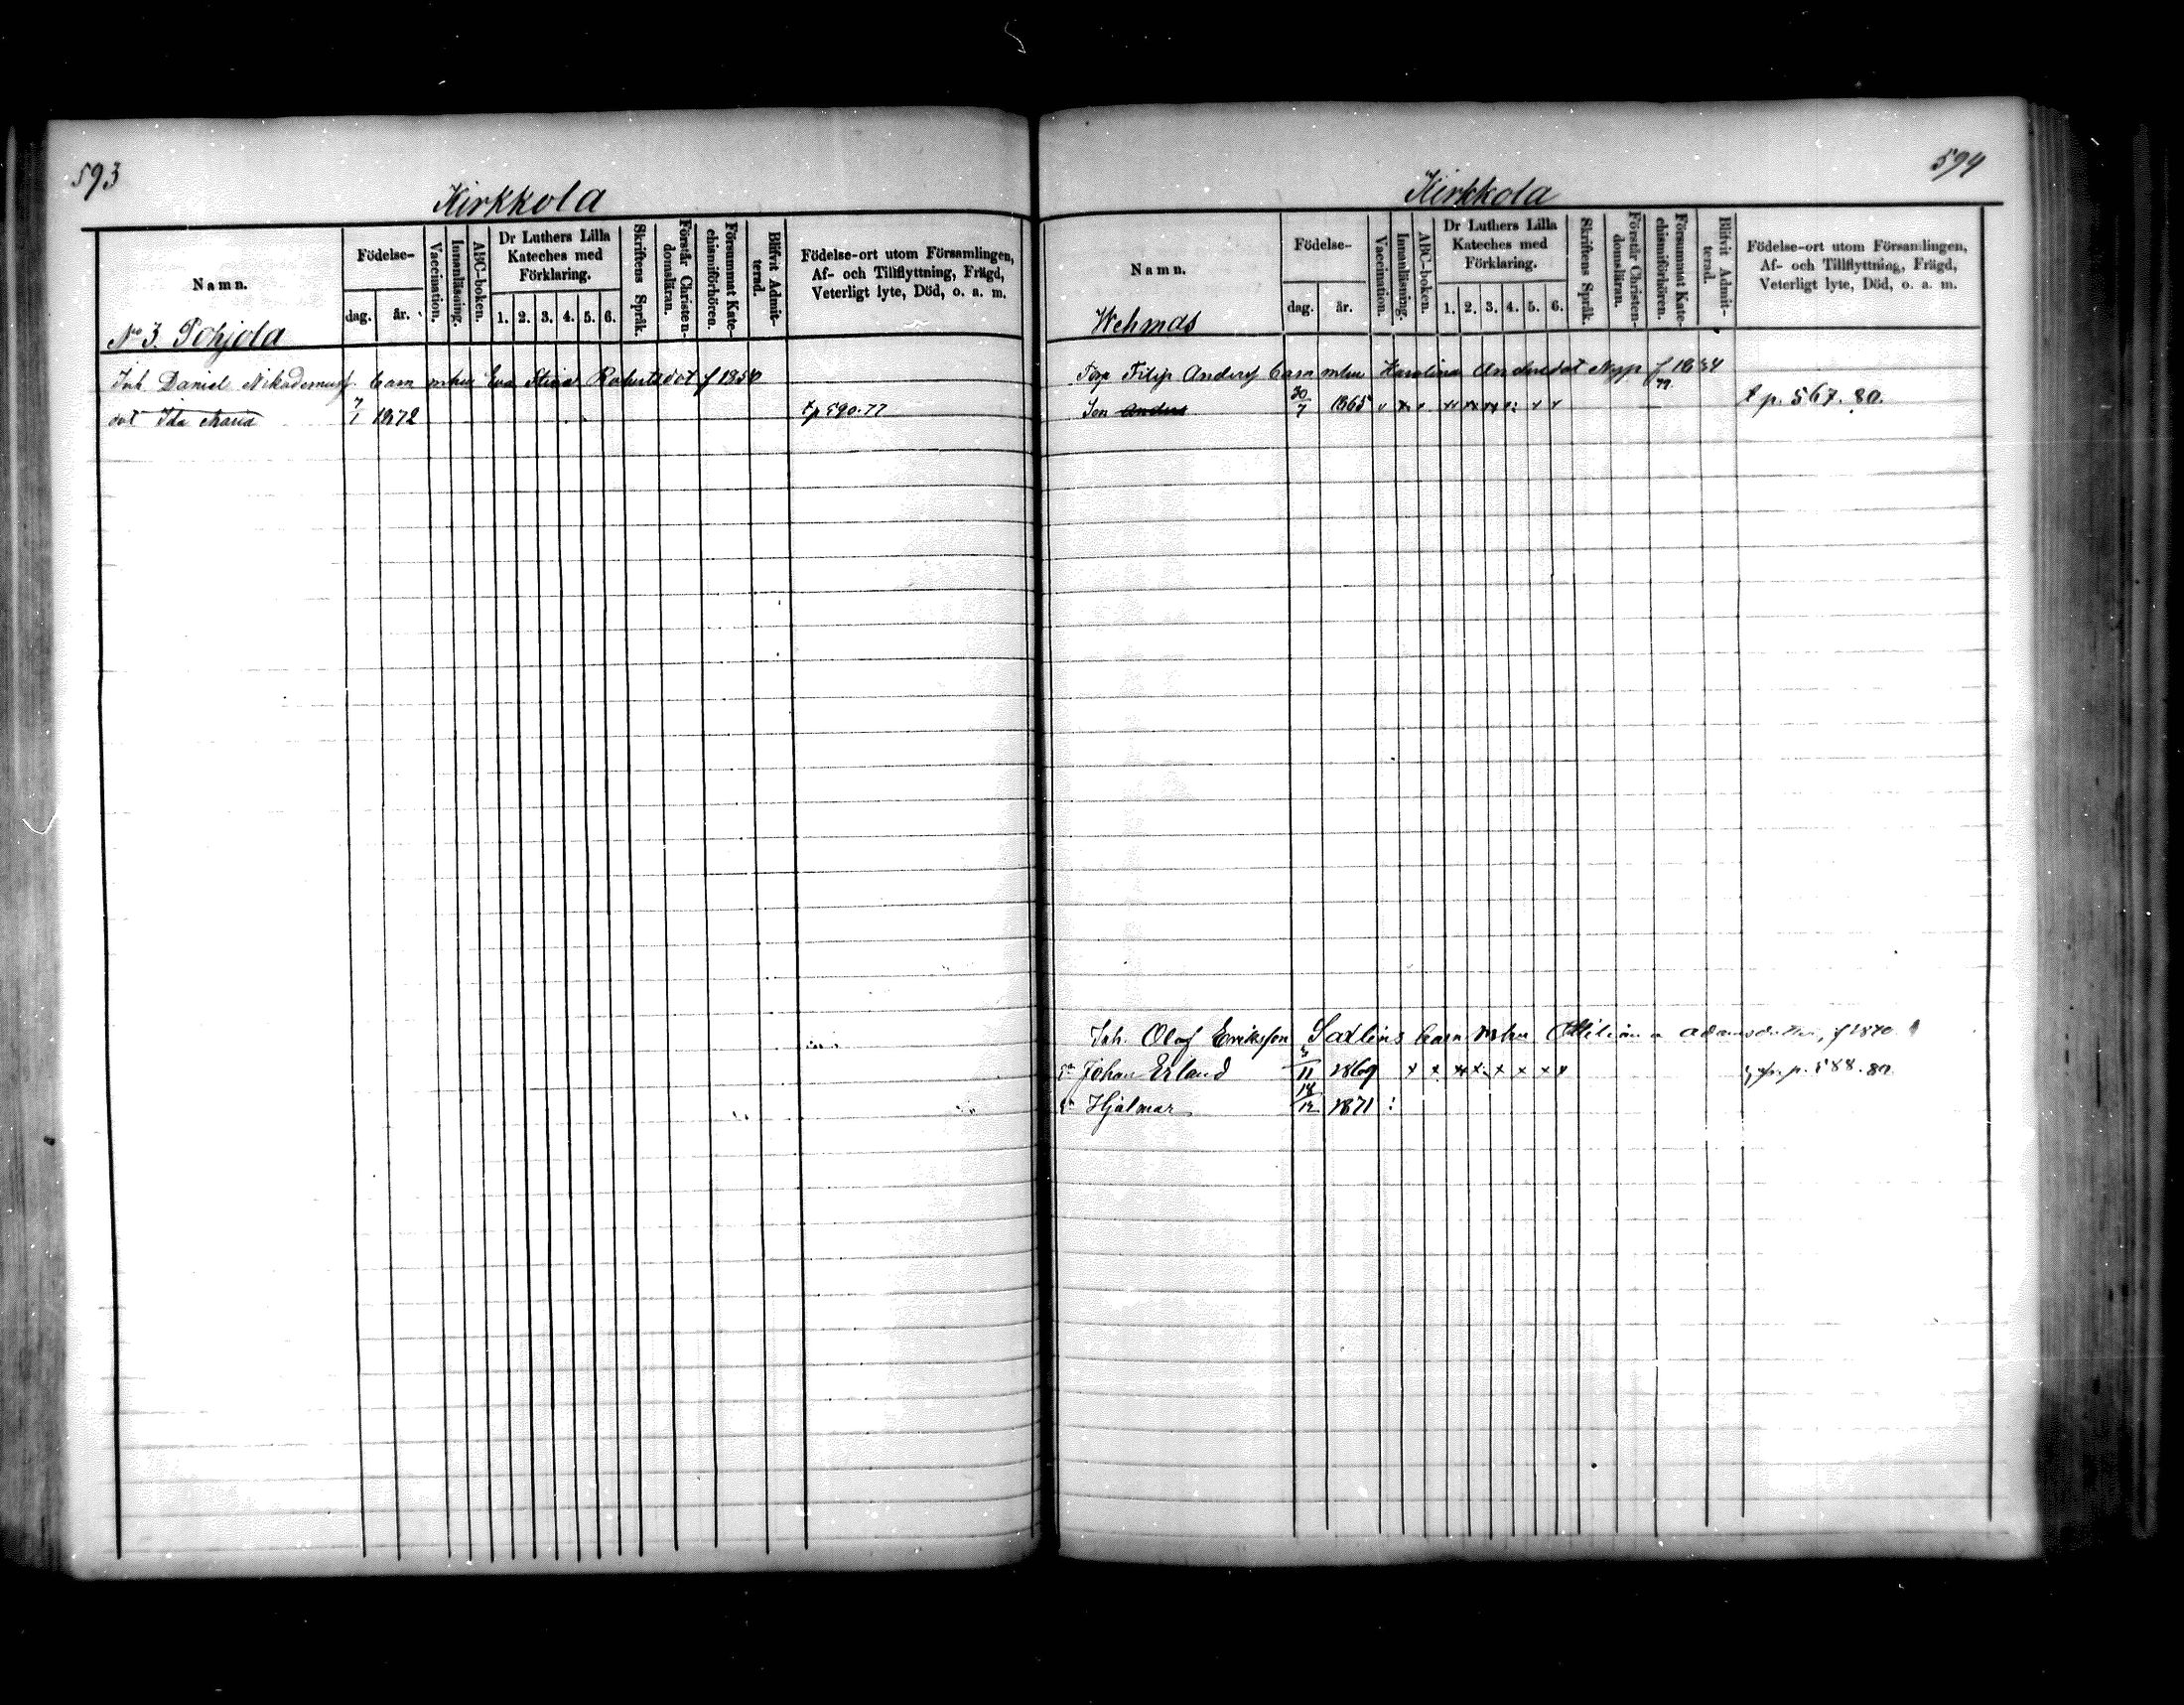 593
Kirkkola
Namn.
Födelse-
dag.
år.
Vaccination.
Innanläsning.
ABC-boken.
Dr Luthers Lilla
Kateches med
Förklaring.
1. 2. 3. 4. 5. 6.
Skriftens Språk.
Förstår Christen-
domsläran.
Försummat Kate-
chismiförhören.
Blifvit Admit-
terad.
Födelse-ort utom Församlingen,
Af- och Tillflyttning, Frägd,
Veterligt lyte, Död, o. a. m.
No 3. Pohjola
Inh. Daniel Nikademuss. barn mhu Eva Stina Robertsdot f 1850
dot Ida Maria 7/1 1872 tp 590. 77
594
Kirkkola
Namn.
Födelse-
dag.
år.
Vaccination.
Innanläsning.
ABC-boken.
Dr Luthers Lilla
Kateches med
Förklaring.
1. 2. 3. 4. 5. 6.
Skriftens Språk.
Förstår Christen-
domsläran.
Försummat Kate-
chismiförhören.
Blifvit Admit-
terad.
Födelse-ort utom Församlingen,
Af- och Tillflyttning, Frägd,
Veterligt lyte, Död, o. a. m.
Wehmas
Torp Filip Anderss barn mhu Karolina Andersdot f 1834
Son Anders 30/7 1865 t p. 567. 80.
Inh. Olof Eriksson Saxlins barn mhu Adamsdotter, f 1840
Sn Johan Erland 1869 p. 588. 80
Sn Hjalmar 14/12 1871